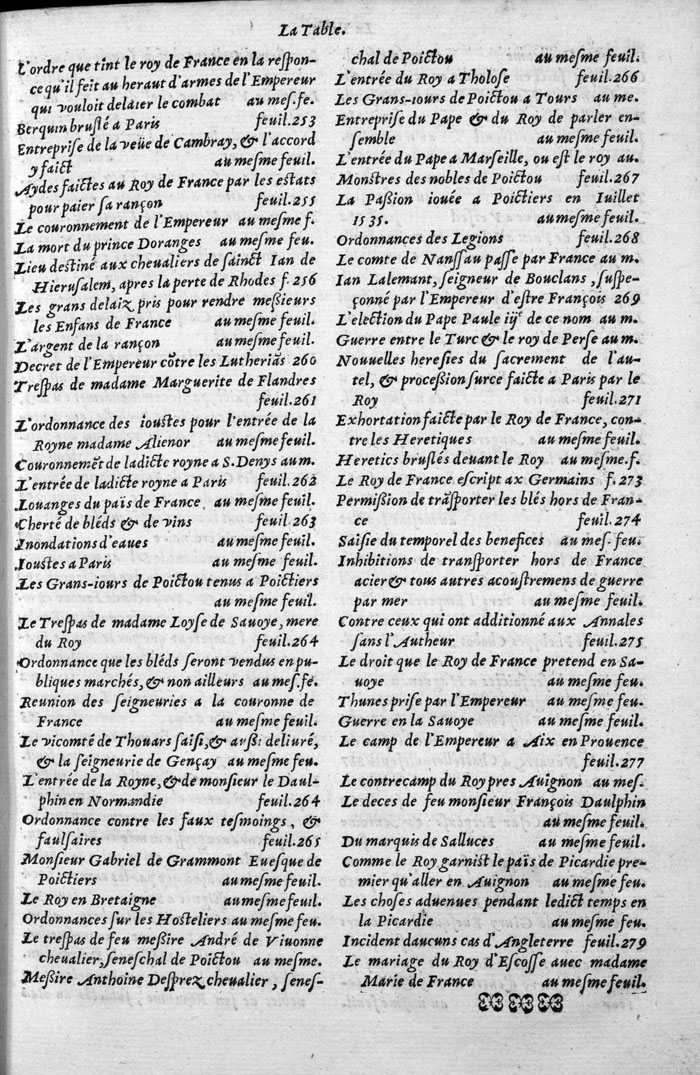 La Table.
L'ordre que tint le roy de France en la respon-
ce qu'il feit au heraut d'armes de l'Empereur
qui vouloit delaier le combat au mes. fe.
Berquin bruslé a Paris feuil.253
Entreprise de la veüe de Cambray, & l'accord
y faict au mesme feuil.
Aydes faictes au Roy de France par les estats
pour paier sa rançon feuil.255
Le couronnement de l'Empereur au mesme f.
La mort du prince Doranges au mesme feu.
Lieu destiné aux cheualiers de sainct Ian de
Hierusalem, apres la perte de Rhodes f.256
Les grans delaiz pris pour rendre messieurs
les Enfans de France au mesme feuil.
L'argent de la rançon au mesme feuil.
Decret de l'Empereur cõtre les Lutheriãs 260
Trespas de madame Marguerite de Flandres
feuil.261
L'ordonnance des ioustes pour l'entrée de la
Royne madame Alienor au mesme feuil.
Couronnemẽt de ladicte royne a S. Denys au m.
L'entrée de ladicte royne a Paris feuil.262
Louanges du païs de France au mesme feuil.
Cherté de bléds & de vins feuil.263
Inondations d'eaues au mesme feuil.
Ioustes a Paris au mesme feuil.
Les Grans-iours de Poictou tenus a Poictiers
au mesme feuil.
Le Trespas de madame Loyse de Sauoye, mere
du Roy feuil.264
Ordonnance que les bléds seront vendus en pu-
bliques marchés, & non ailleurs au mes. fe.
Reunion des seigneuries a la couronne de
France au mesme feuil.
Le vicomté de Thouars saisi, & aussi deliuré,
& la seigneurie de Gençay au mesme feu.
L'entrée de la Royne, & de monsieur le Daul-
phin en Normandie feuil.264
Ordonnance contre les faux tesmoings, &
faulsaires feuil.265
Monsieur Gabriel de Grammont Euesque de
Poictiers au mesme feuil.
Le Roy en Bretaigne au mesme feuil.
Ordonnances sur les Hosteliers au mesme feu.
Le trespas de feu messire André de Viuonne
cheualier, seneschal de Poictou au mesme.
Messire Anthoine Desprez cheualier, senes-
chal de Poictou au mesme feuil.
L'entrée du Roy a Tholose feuil.266
Les Grans-iours de Poictou a Tours au me.
Entreprise du Pape & du Roy de parler en-
semble au mesme feuil.
L'entrée du Pape a Marseille, ou est le roy au.
Monstres des nobles de Poictou feuil.267
La Passion iouée a Poictiers en Iuillet
1535. au mesme feuil.
Ordonnances des Legions feuil.268
Le comte de Nanssau passe par France au m.
Ian Lalemant, seigneur de Bouclans, suspe-
çonné par l'Empereur d'estre François 269
L'election du Pape Paule iijᵉ de ce nom au m.
Guerre entre le Turc & le roy de Perse au m.
Nouuelles heresies du sacrement de l'au-
tel, & procession surce faicte a Paris par le
Roy feuil.271
Exhortation faicte par le Roy de France, con-
tre les Heretiques au mesme feuil.
Heretics bruslés deuant le Roy au mesme. f.
Le Roy de France escript ax Germains f.273
Permission de trãsporter les blés hors de Fran-
ce feuil.274
Saisie du temporel des benefices au mes. feu.
Inhibitions de transporter hors de France
acier & tous autres acoustremens de guerre
par mer au mesme feuil.
Contre ceux qui ont additionné aux Annales
sans l'Autheur feuil.275
Le droit que le Roy de France pretend en Sa-
uoye au mesme feu.
Thunes prise par l'Empereur au mesme feu.
Guerre en la Sauoye au mesme feu.
Le camp de l'Empereur a Aix en Prouence
feuil.277
Le contrecamp du Roy pres Auignon au mes.
Le deces de feu monsieur François Daulphin
au mesme feuil.
Du marquis de Salluces au mesme feuil.
Comme le Roy garnist le païs de Picardie pre-
mier qu'aller en Auignon au mesme feu.
Les choses aduenues pendant ledict temps en
la Picardie au mesme feu.
Incident daucuns cas d'Angleterre feuil.279
Le mariage du Roy d'Escosse auec madame
Marie de France au mesme feuil.